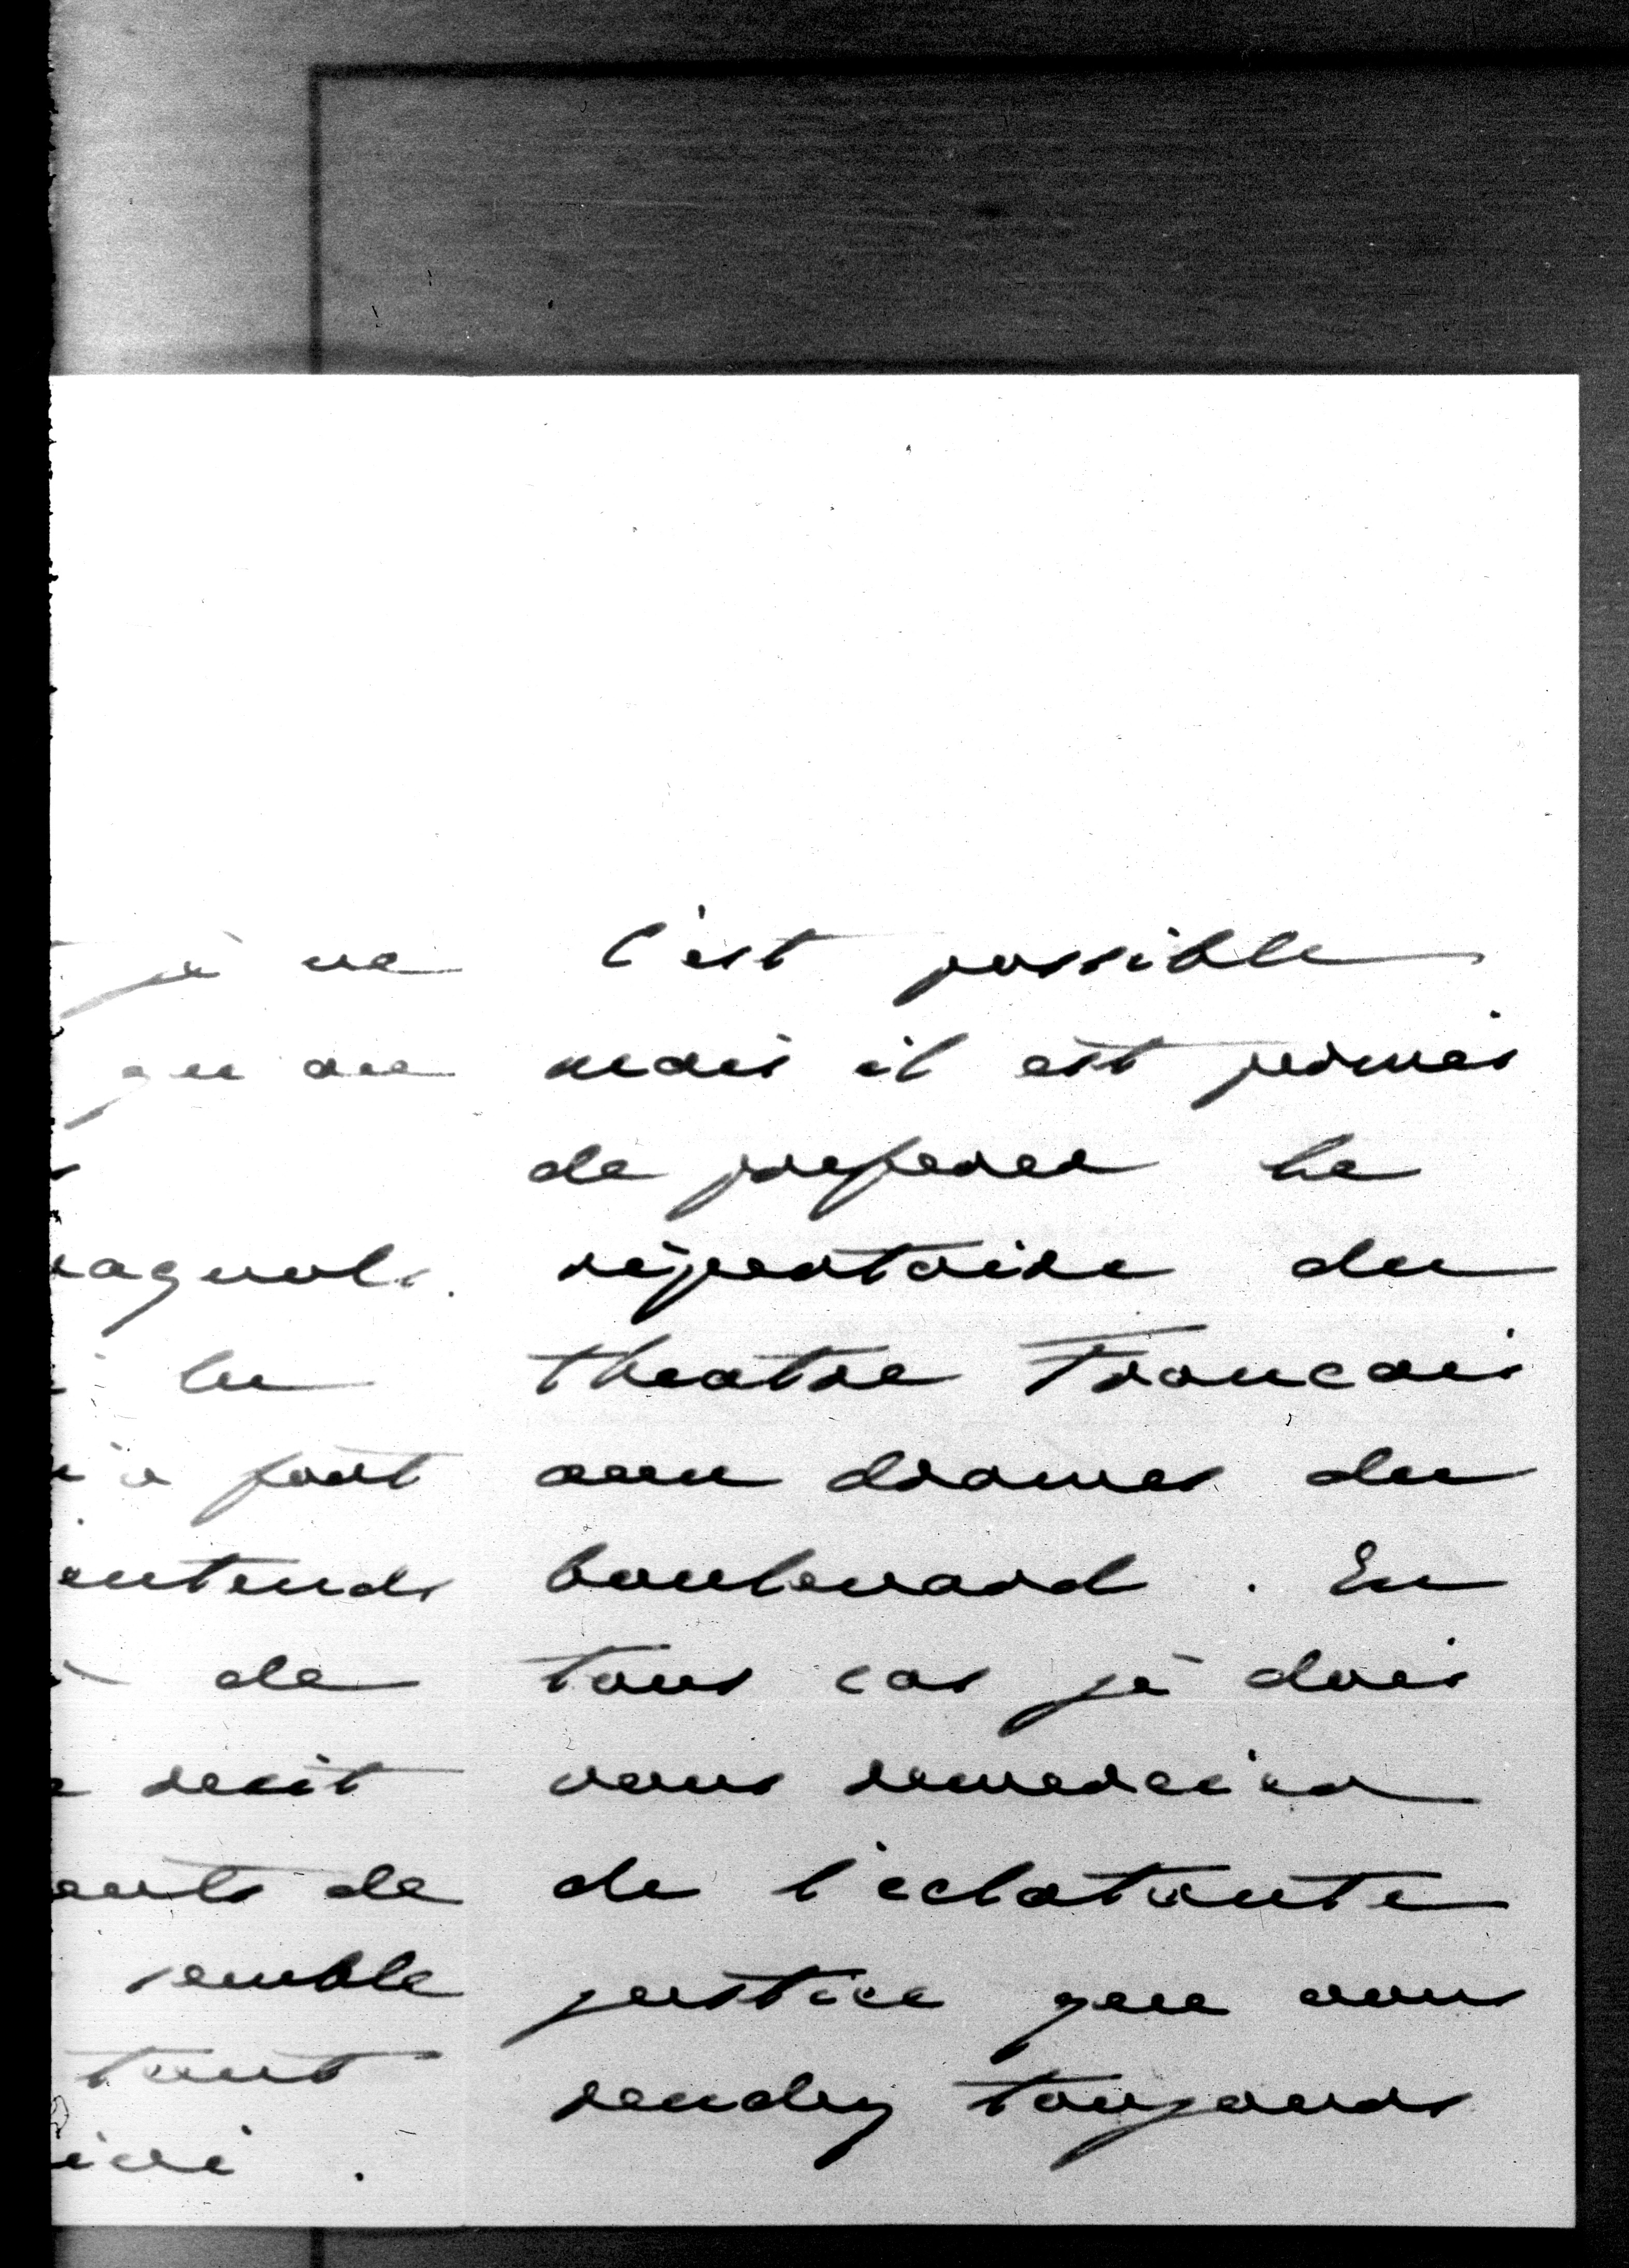 je ne
que
de
lu
fort
entends
de
recit
de
semble
tout
ici.
C'est possible
mais il est permis
de preferer le
répertoire du
theatre Francais
aux drames du
boulevard. En
tous cas je dois
vous remercier
de l'eclatante
justice que vous
rendez toujours